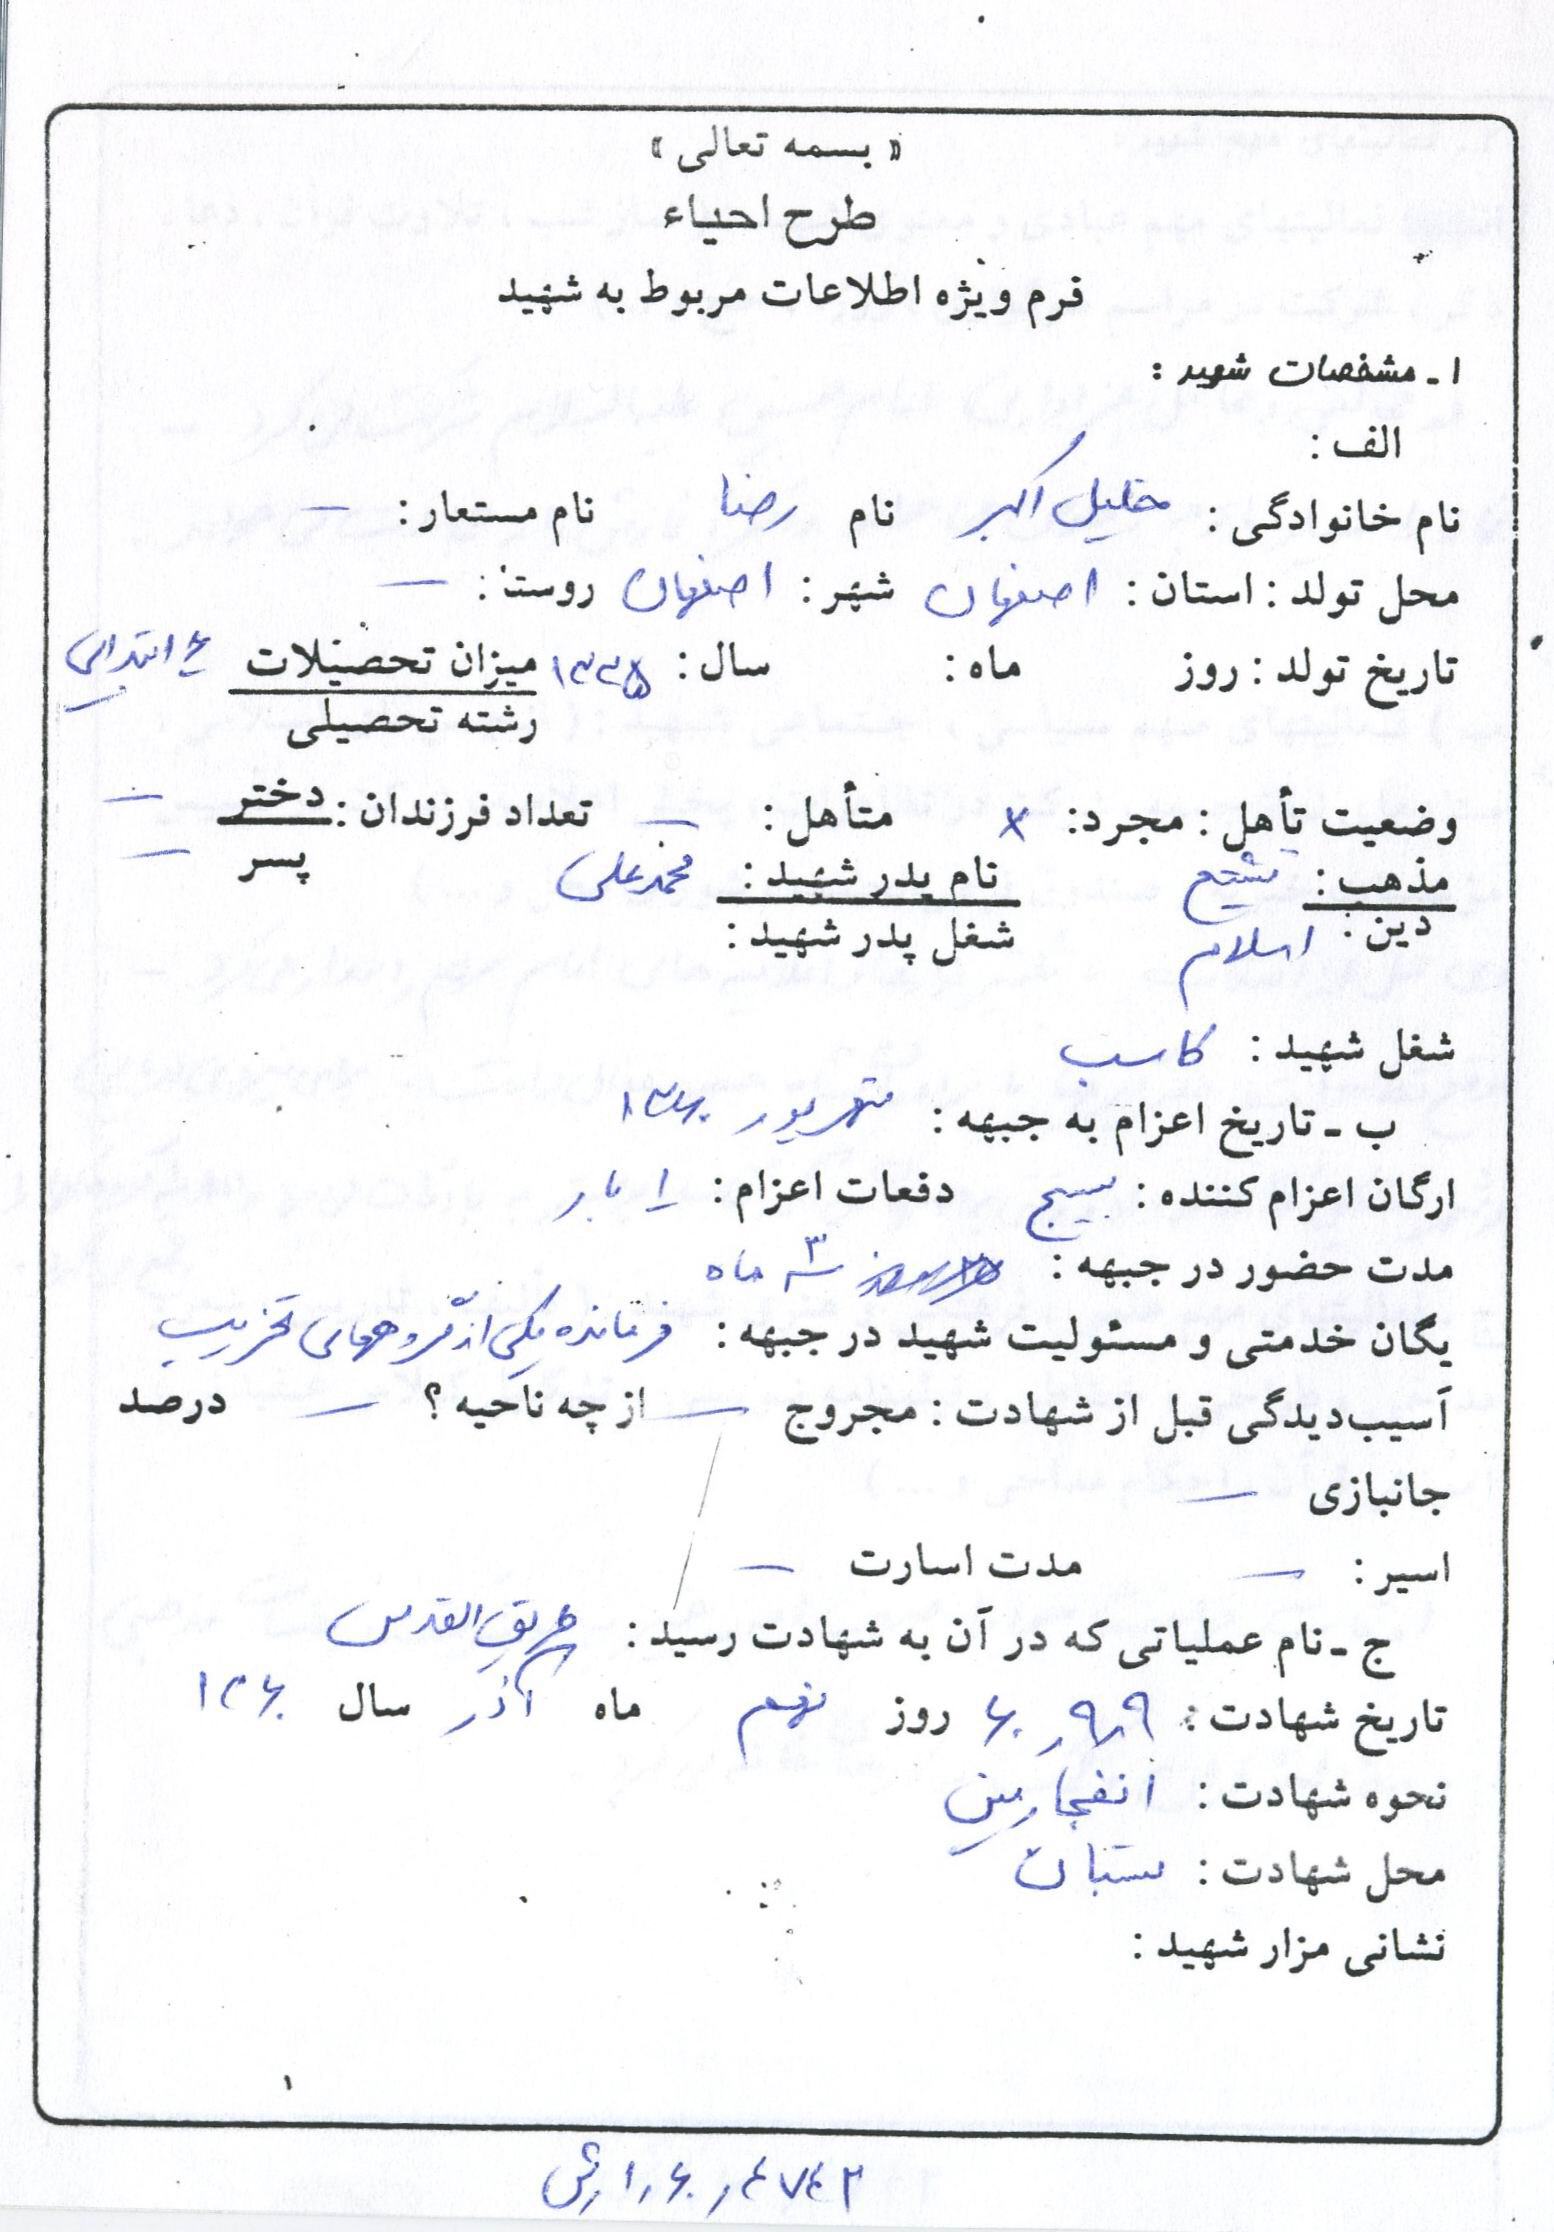 « بسمه تعالی »
طرح احیاء
فرم ویژه اطلاعات مربوط به شهید
۱ـ مشخصات شهید :
الف :
نام خانوادگی : خلیل اکبر نام رضا نام مستعار : —
محل تولد : استان : اصفهان شهر : اصفهان روستا : —
تاریخ تولد : روز ماه : سال : ۱۳۳۵ میزان تحصیلات ۶ ابتدایی
رشته تحصیلی
وضعیت تأهل : مجرد : × متأهل : — تعداد فرزندان : دختر —
پسر —
مذهب : تشیع نام پدر شهید : محمدعلی
دین : اسلام شغل پدر شهید :
شغل شهید : کاسب
ب ـ تاریخ اعزام به جبهه : شهریور ۱۳۶۰
ارگان اعزام کننده : بسیج دفعات اعزام : ۱ بار
مدت حضور در جبهه : ۳ سه ماه
یگان خدمتی و مسئولیت شهید در جبهه : فرمانده یکی از گروههای تخریب
آسیب‌دیدگی قبل از شهادت : مجروح — از چه ناحیه ؟ — درصد
جانبازی —
اسیر : — مدت اسارت —
ج ـ نام عملیاتی که در آن به شهادت رسید : طریق القدس
تاریخ شهادت : ۶۰٫۹٫۹ روز نهم ماه آذر سال ۱۳۶۰
نحوه شهادت : انفجار مین
محل شهادت : بستان
نشانی مزار شهید :
۱